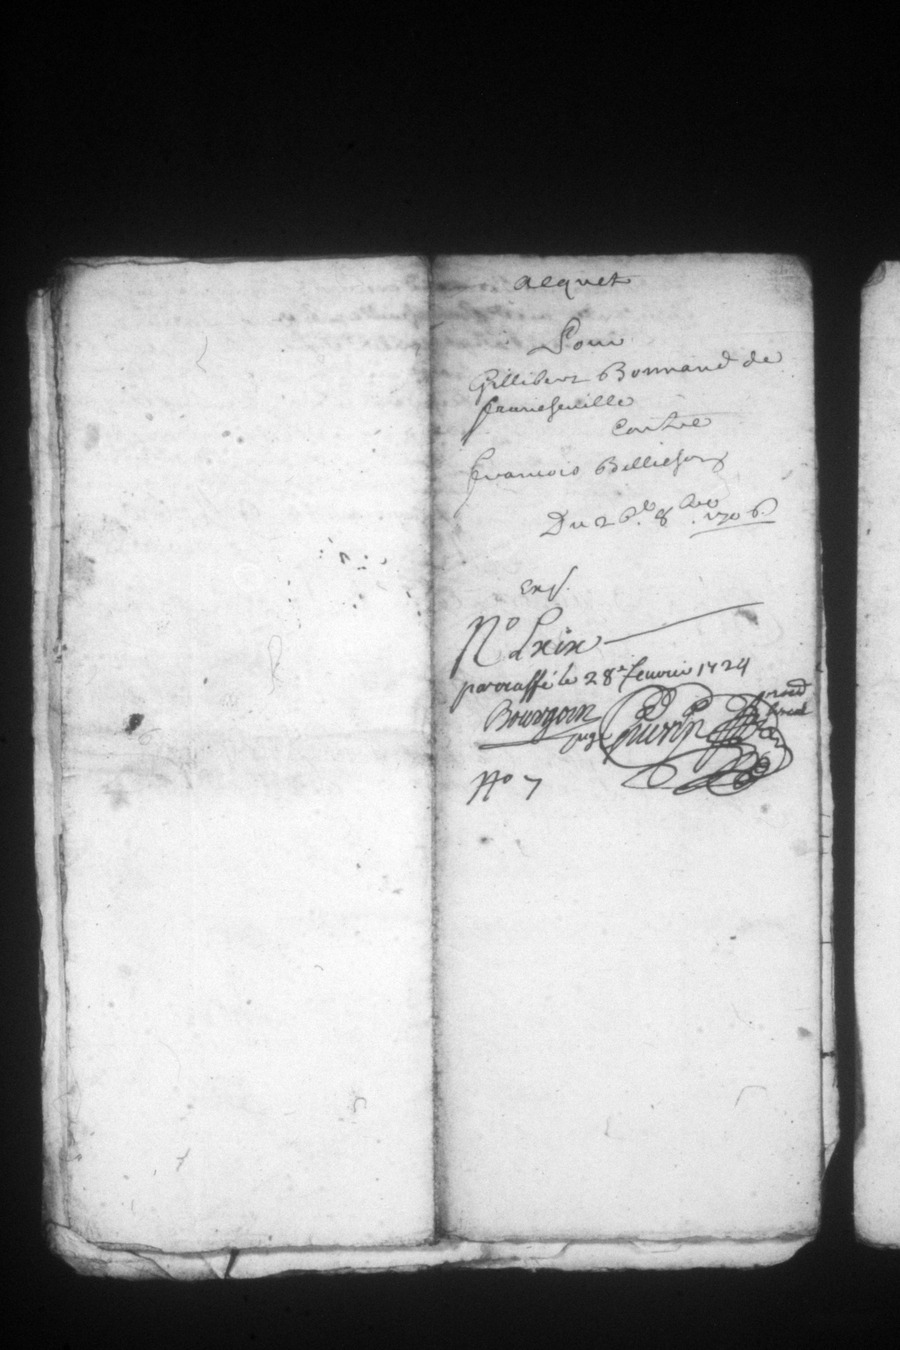 acquet
Pour
Gillibert Bonnaud de
francheville
contre
francois Bellicson
Du 26e. 8bre 1706.
enf.
No Lxix
paraffé le 28e. feuvrie 1724
Bourgoin Guerin
juge
No 7